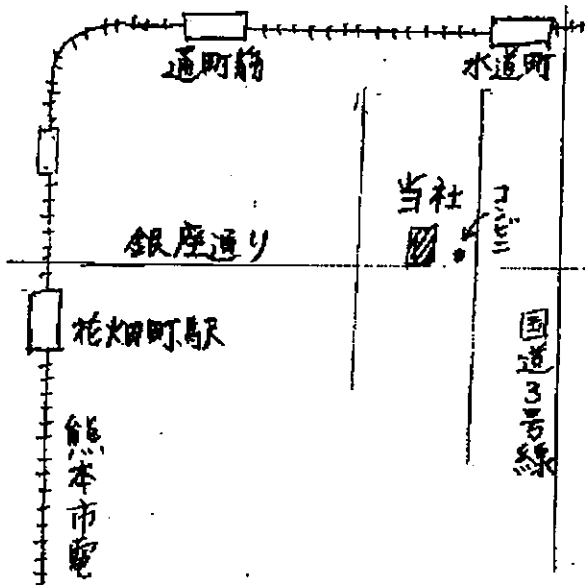 通町筋
水道町
当社
コンビニ
銀座通り
花畑町駅
国道3号線
熊本市電